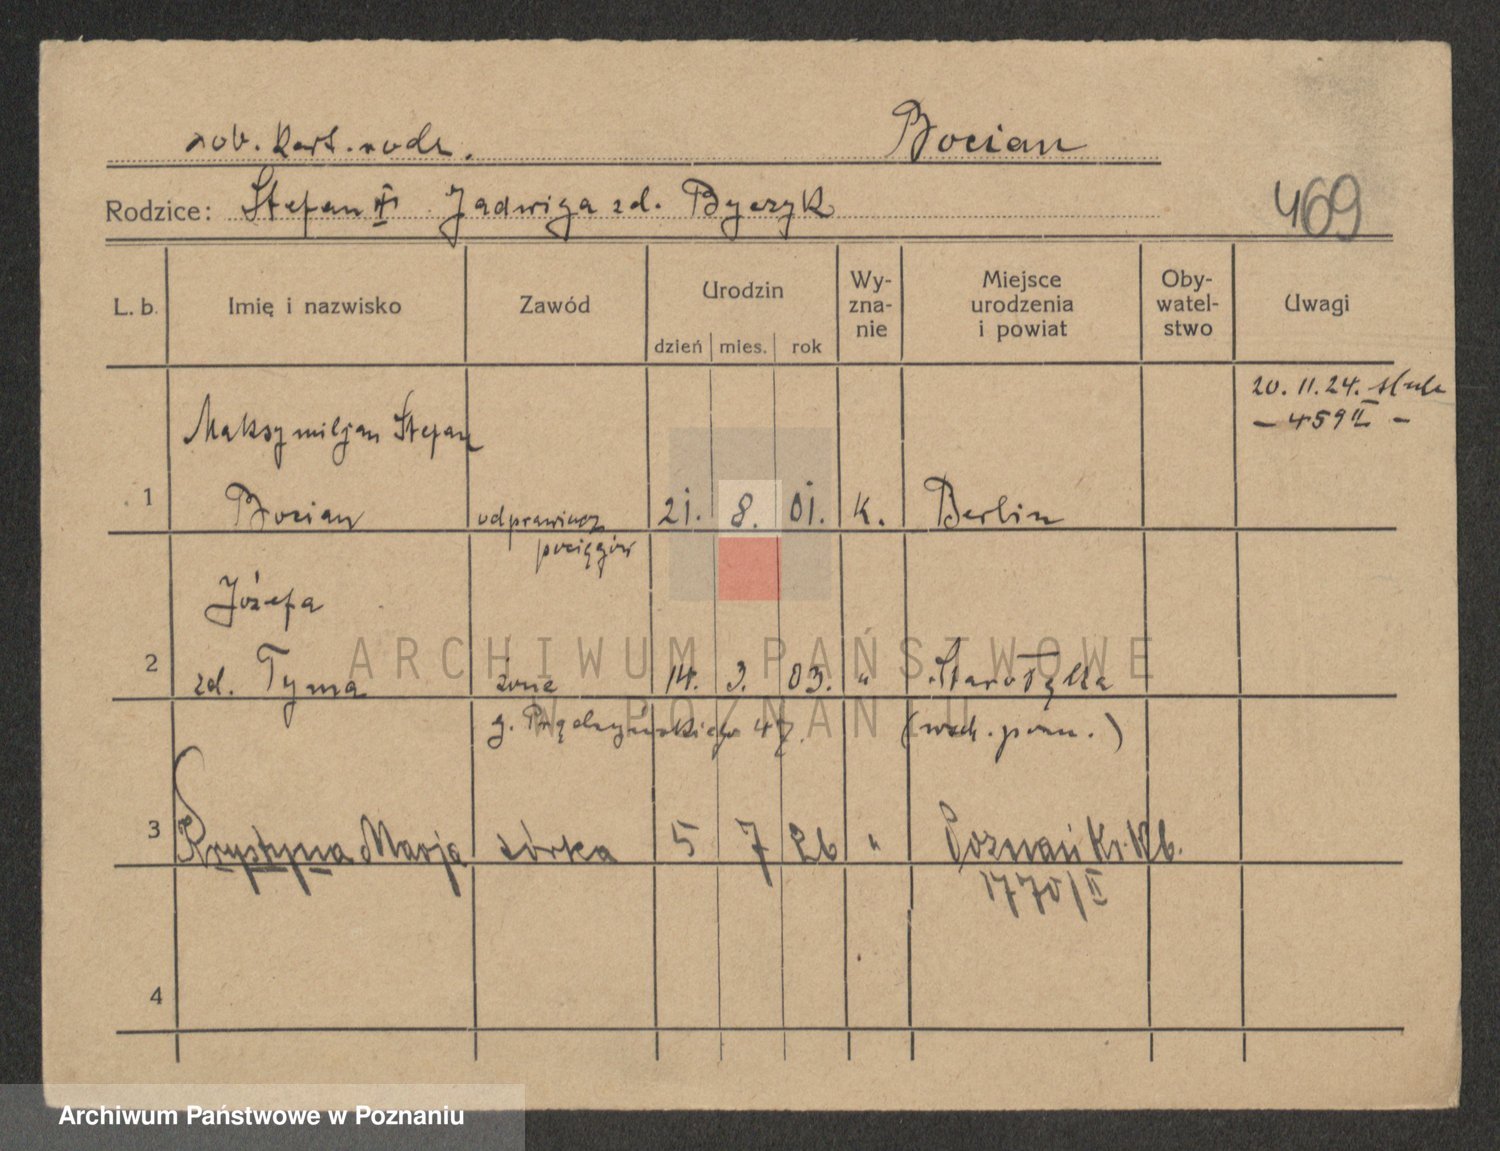 zob. kart. rodz. Bocian
Rodzice: Stefan † Jadwiga zd. Byczyk
469
L. b. Imię i nazwisko Zawód Urodzin dzień mies. rok Wy-zna-nie Miejsce urodzenia i powiat Oby-watel-stwo Uwagi
20. 11. 24.
– 459 II –
Maksymiljan Stefan
1 Bocian odprawiacz 21. 8. 01. k. Berlin
pociągów
Józefa
2 zd. Tyma żona 14. 3. 03. " Starołęka
g. Prądzyńskiego 47. (wsch. pozn.)
3 Krystyna Marja córka 5 7 26 "
Poznań Kr. Kb.
1770/II
4
ARCHIWUM PAŃSTWOWE
W POZNANIU
Archiwum Państwowe w Poznaniu